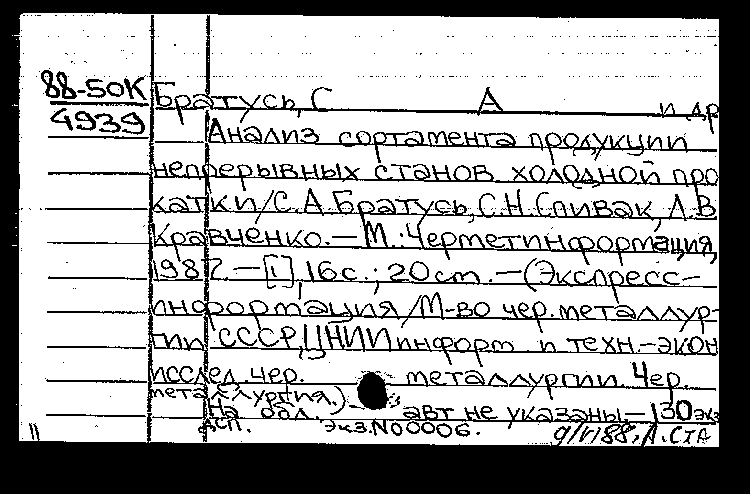 88-50К
4939
Братусь, С А и др
Анализ сортамента продукции
непрерывных станов холодной про
катки/С.А.Братусь, С.Н.Спивак, Л.В
Кравченко.—М.:Черметинформация,
1987.—[1], 16с.; 20см.—(Экспресс-
информация/М-во чер.металлур-
гии СССР, ЦНИИ информ и техн.-экон
исслед чер. металлургии Чер.
металлургия.)
На обл. авт не указаны—130экз
ДСП. Экз.N00006.